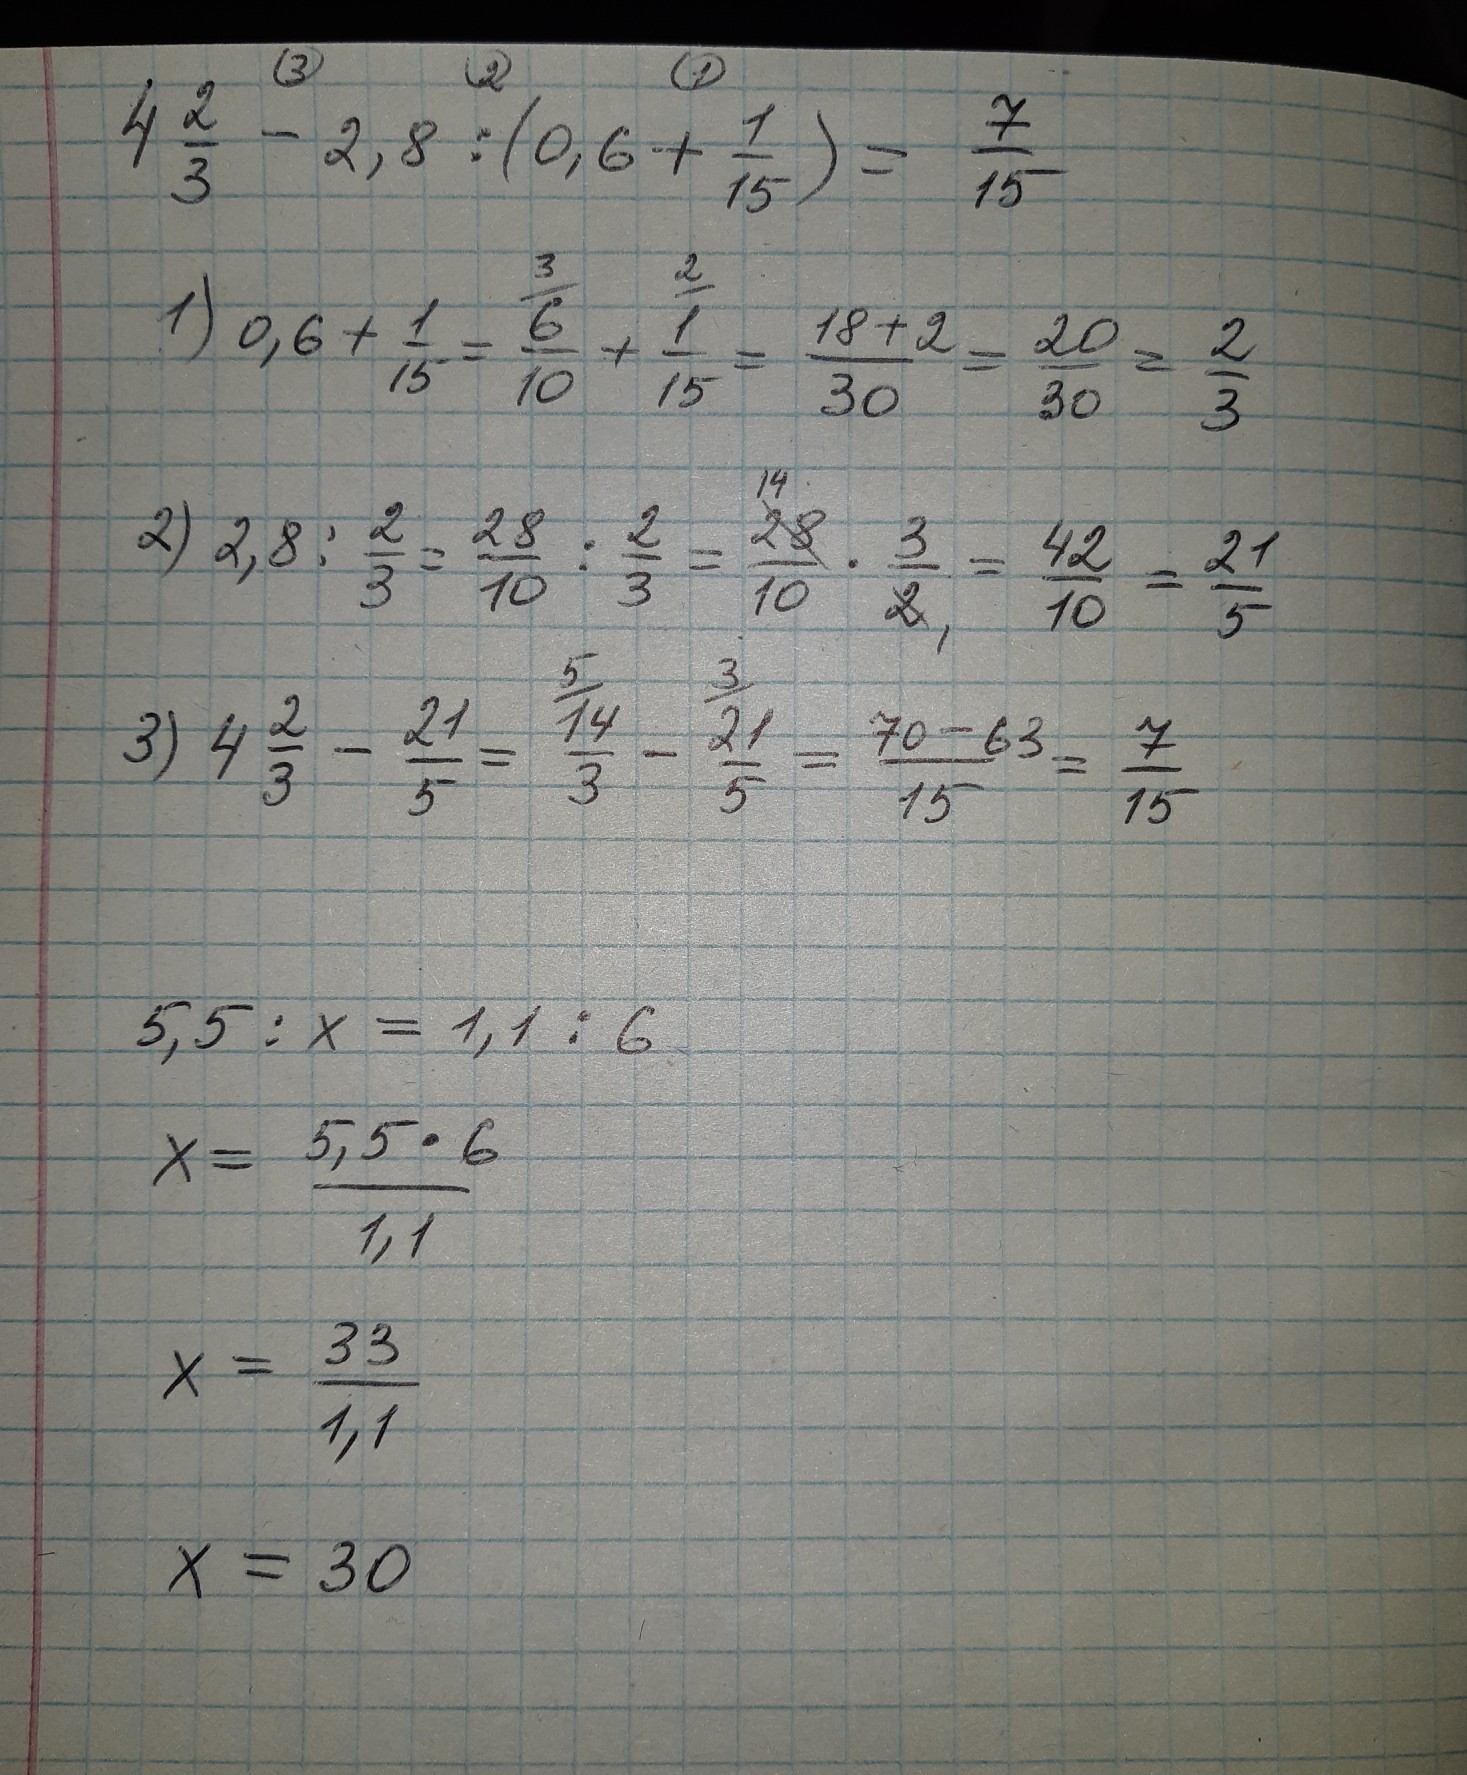 ③ ② ①
4 2/3 - 2,8 : (0,6 + 1/15) = 7/15
1) 0,6 + 1/15 = 6/10 (3/ + 1/15 (2/ = (18+2)/30 = 20/30 = 2/3
2) 2,8 : 2/3 = 28/10 : 2/3 = 28/10 (14 · 3/2 (1 = 42/10 = 21/5
3) 4 2/3 - 21/5 = 14/3 (5/ - 21/5 (3/ = (70-63)/15 = 7/15
5,5 : x = 1,1 : 6
x = (5,5 · 6)/1,1
x = 33/1,1
x = 30